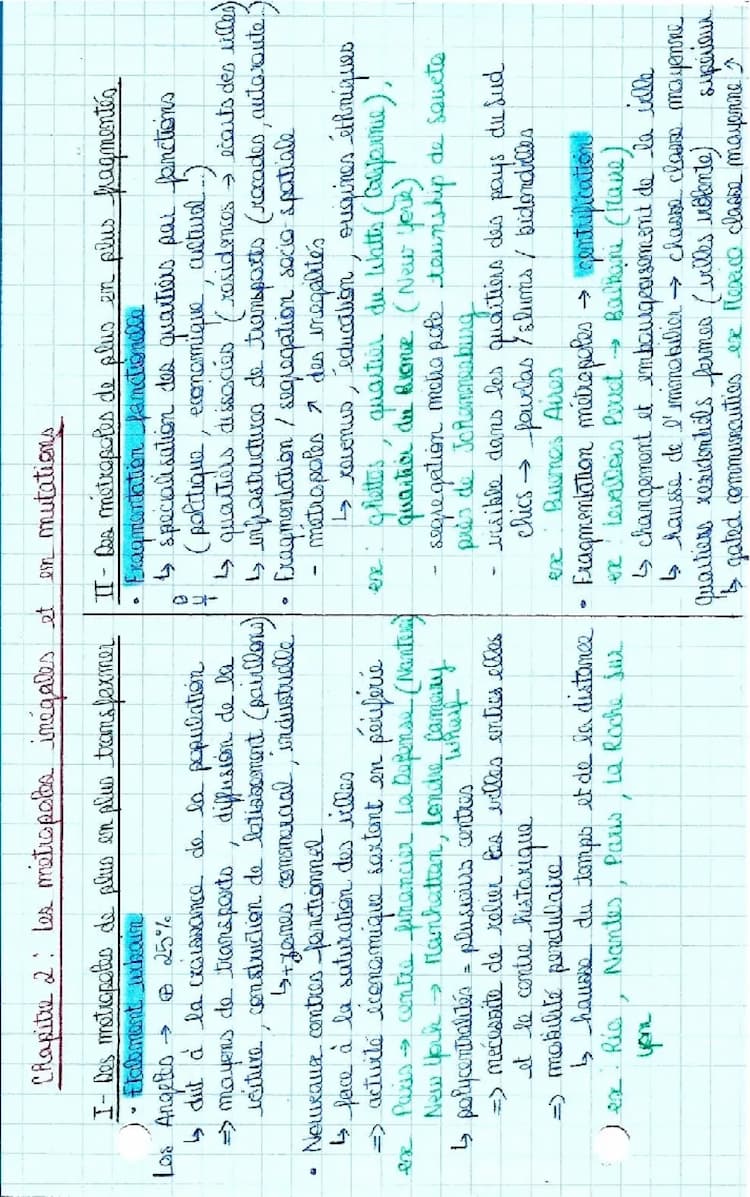 Chapitre 2 : les métropoles inégales et en mutations
I - Des métropoles de plus en plus transformer
• Etalement urbain
Los Angeles → ⊕ 25%
↳ dut à la croissance de la population
=> moyens de transports, diffusion de la
voiture, construction de lotissement (pavillons)
↳ + zones commercial, industrielle
• Nouveaux centres fonctionnel
↳ face à la saturation des villes
=> activité économique sortent en périférie
ex Paris → centre financier La Défense (Nanterre)
New York → Manhattan, Londre Canary
Wharf
↳ polycentralités = plusieurs centres
=> nécessité de relier les villes entres elles
et le centre historique
=> mobilité pendulaire
↳ hausse du temps et de la distance
ex : Rio, Nantes, Paris, La Roche sur
yon
II - Des métropoles de plus en plus fragmentés
• Fragmentation fonctionelle
↳ spécialisation des quartiers par fonctions
(politique, économique, cultural...)
↳ quartiers dissociés (résidences → écarts des villes)
↳ infrastructures de transports (rocades, autoroute...)
• Fragmentation / ségrégation socio spatiale
- métropoles ↗ des inégalités
↳ revenus, éducation, origines éthniques
ex : ghettos, quartier du Watts (Californie),
quartier du Bronx (New York)
- ségrégation métropole township de Soweto
près de Johannesburg
- visible dans les quartiers des pays du Sud
chics → favelas / slums / bidonvilles
ex Buenos Aires
• Fragmentation métropoles → gentrification
ex : Levallois Perret → Balkani (Maire)
↳ changement et embourgeoisement de la ville
↳ hausse de l'immobilier → chasse classe moyenne
supérieur
quartiers résidentiels fermés (villes violente)
↳ gated communauties ex Mexico classe moyenne ↗